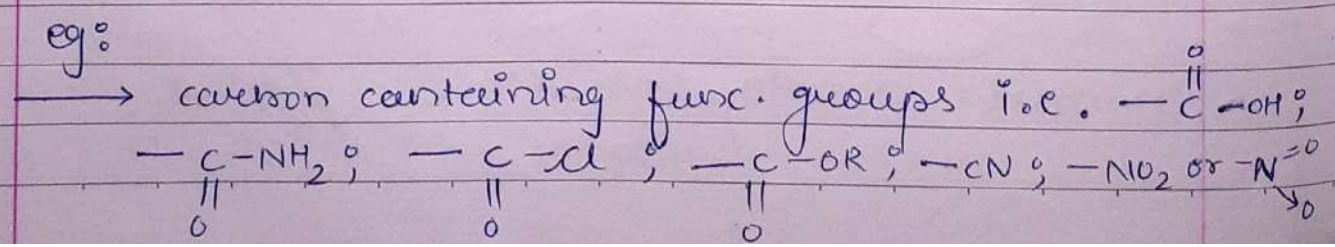 eg:
→ carbon containing func. groups i.e. —C(=O)—OH;
—C(=O)—NH₂; —C(=O)—Cl; —C(=O)—OR; —CN; —NO₂ or —N(=O)→O